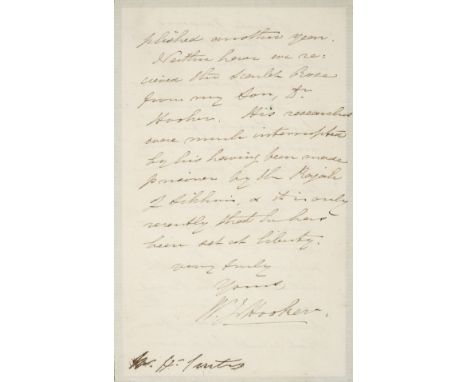 plished another year.
Neither have we re-
ceived the Scarlet Rose
from my Son, Dr
Hooker. His researches
were much interrupted
by his having been made
prisoner by the Rajah
of Sikkim, & it is only
recently that he has
been set at liberty.
very truly
Yours,
W. J. Hooker.